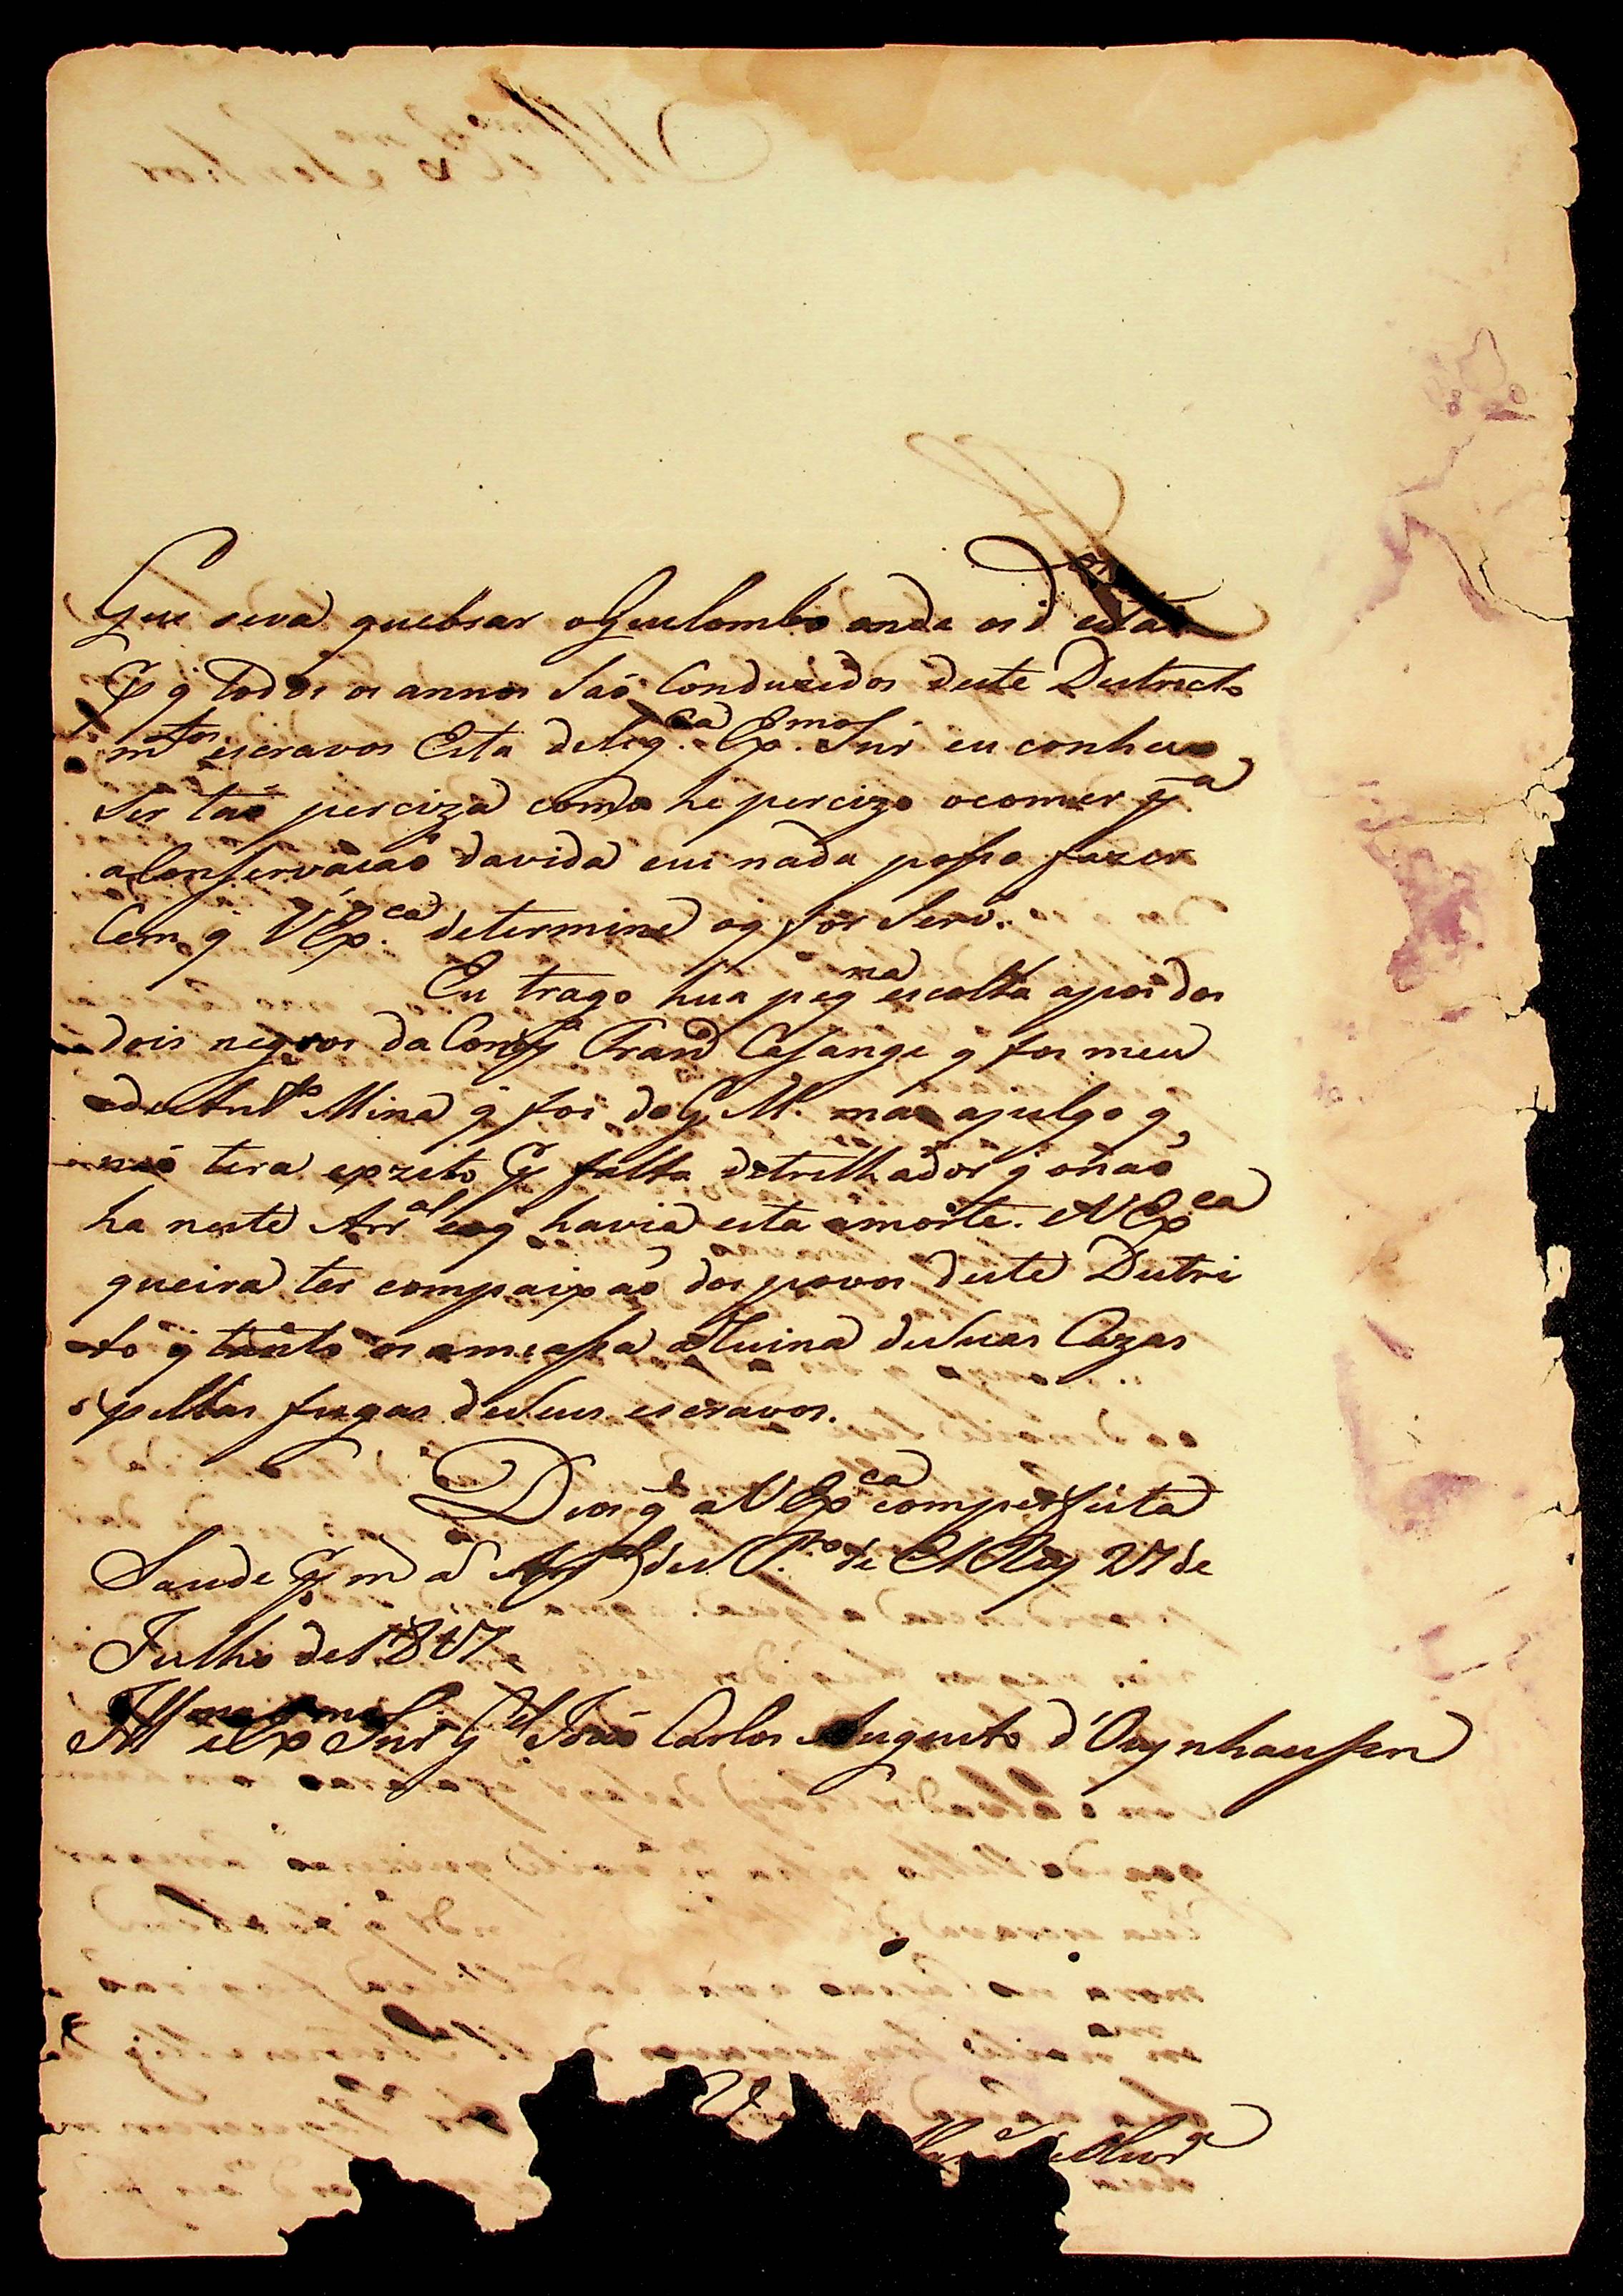 Que seva quebrar oQuilombo onde os d estar
P q todos os annos Saõ Conduzidos deste Destricto
mtos escravos Esta delig.ca Ex.mo Snr eu conheco
Ser taõ perciza como he percizo ocomer pa
aConservacaõ davida eu nada posso fazer
Cem q VEx.ca determine oq for Serv.
Eu trago hua peqna escolta apos dos
dois negros da Cassange q foi meu
Mina q foi do G. M. mas ajulgo q
naõ tera exzito P falta detrilhador q onaõ
ha neste Arral eoq havia esta amorte. eVExca
queira ter compaixaõ dos povos deste Destri
to q tanto os ameassa aRuina deSuas Cazas
pellas fugas deSeus escravos.
Deos gde aVExca comperfeita
Saude P m a Arral deS. P.ro de ElRey 27 de
Julho de1817
Illmo eExmo Snr Gel Joaõ Carlos Augusto d'Oeynhaussen